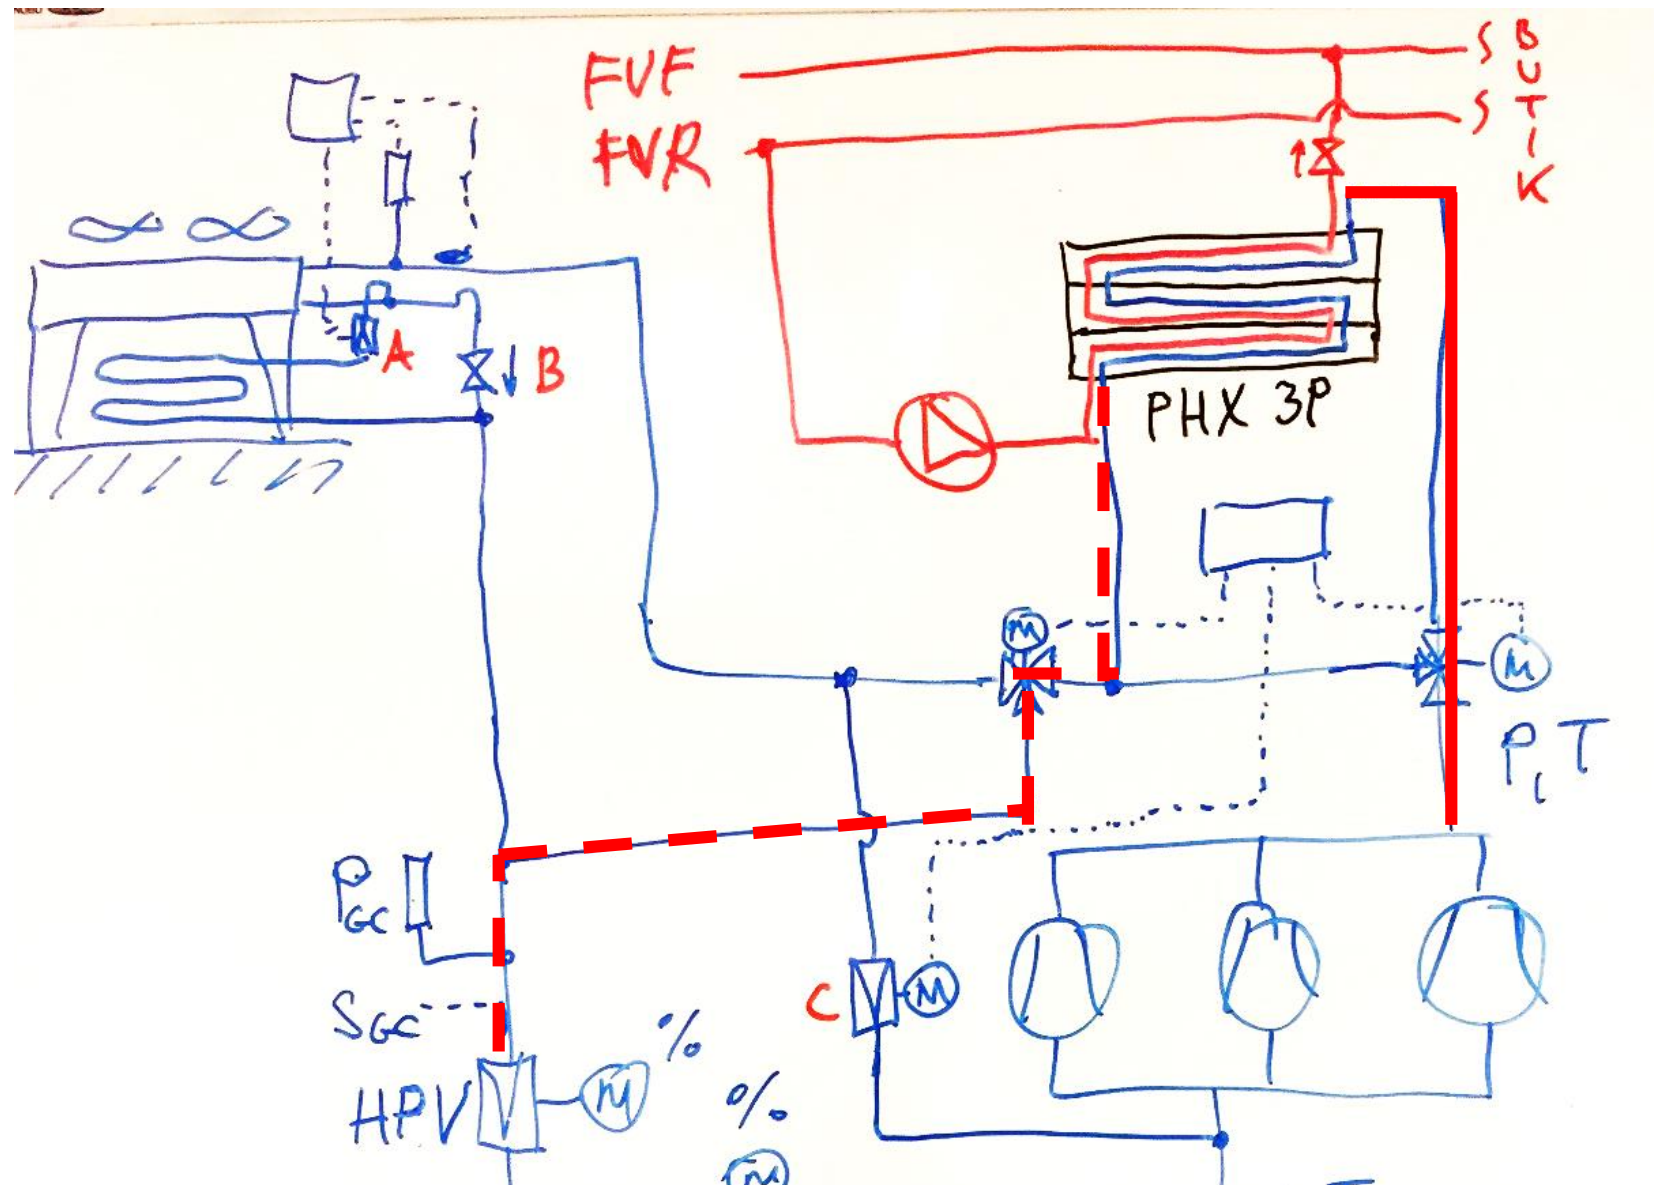 FVF
FVR
S
S
BUTIK
A
B
PHX 3P
M
M
P, T
PGC
SGC
C
M
HPV
M
%
%
M